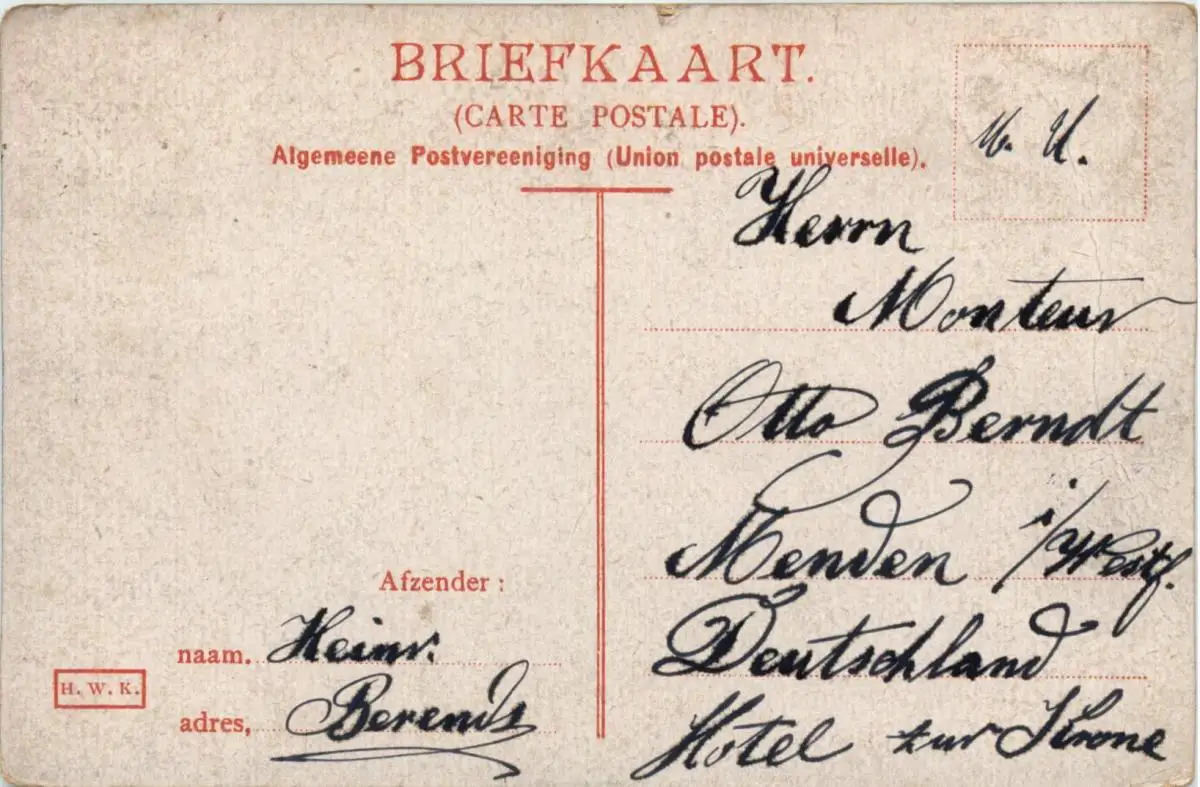 BRIEFKAART.
(CARTE POSTALE).
Algemeene Postvereeniging (Union postale universelle).
Afzender :
naam. Heinr.
adres, Berends
H. W. K.
u. U.
Herrn
Monteur
Otto Berndt
Menden i/Westf.
Deutschland
Hotel zur Krone